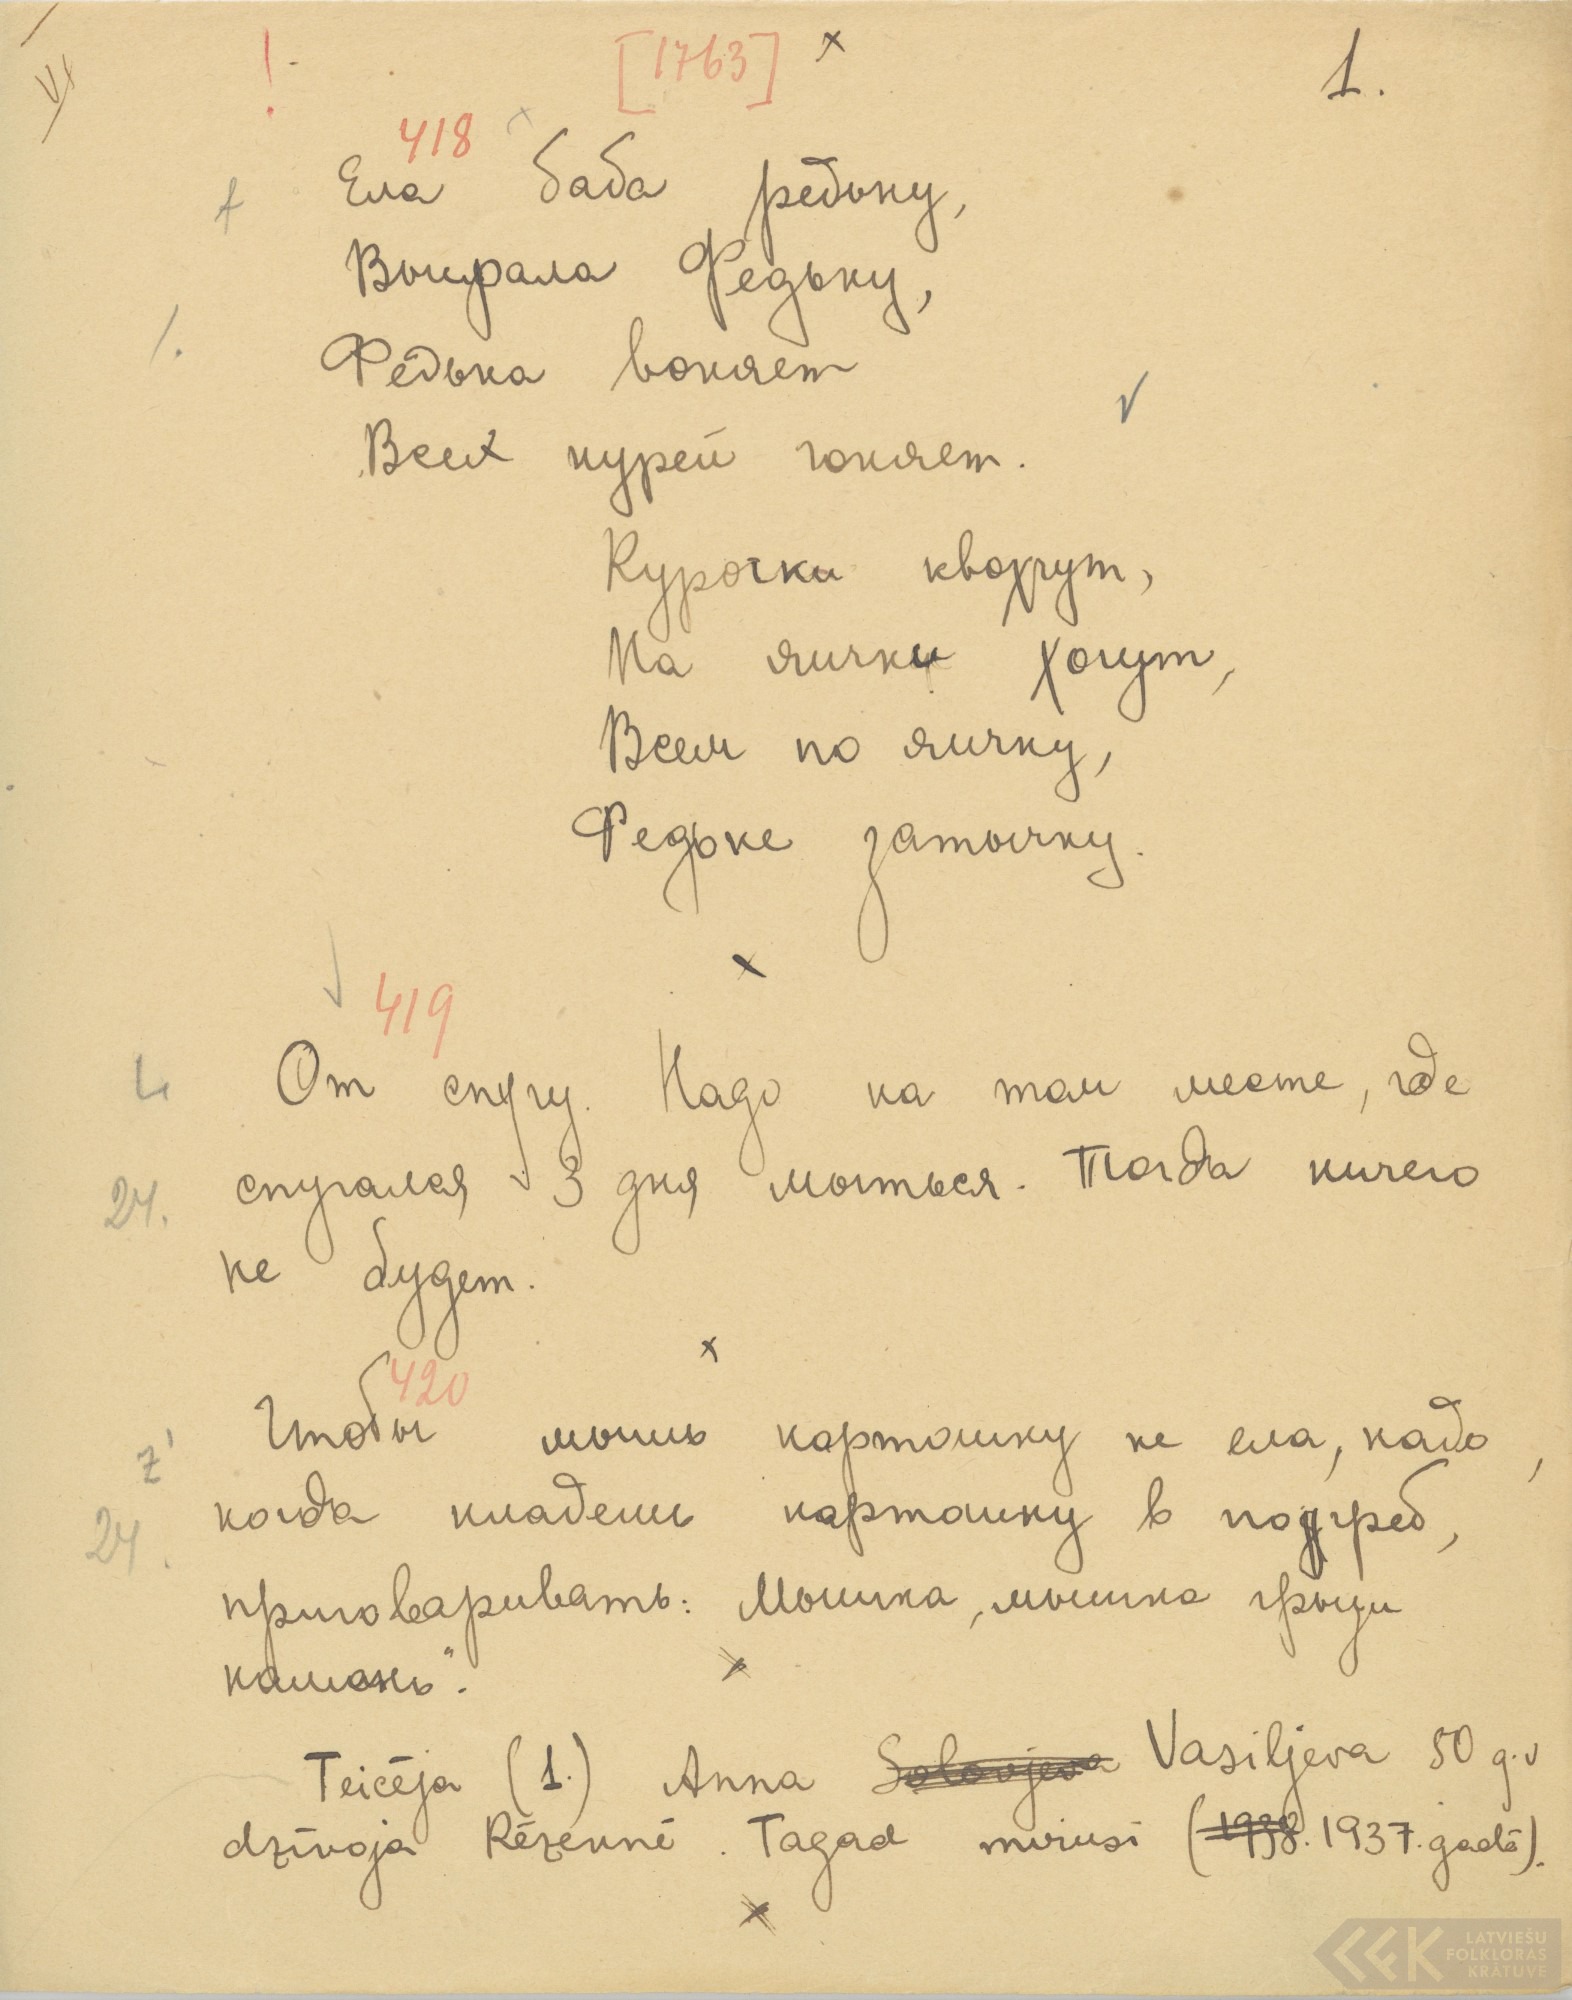 VI
! [1763] x 1.
418
Ела баба редьку,
Высрала Федьку,
1.
Федька воняет
Всех курей гоняет.
Курочки квохчут,
На яички хочут,
Всем по яичку,
Федьке затычку.
x
419
От спугу. Надо на том месте, где
спугался 3 дня мыться. Тогда ничего
24.
не будет.
x
420
Чтобы мышь картошку не ела, надо,
z'
когда кладешь картошку в подгреб,
24.
приговаривать: Мышка, мышка грызи
камень".
x
Teicēja (1.) Anna Solovjeva Vasiļjeva 50 g.v
dzīvoja Rēzeknē. Tagad mirusi (1938. 1937. gadā).
x
LATVIEŠU
FOLKLORAS
KRĀTUVE